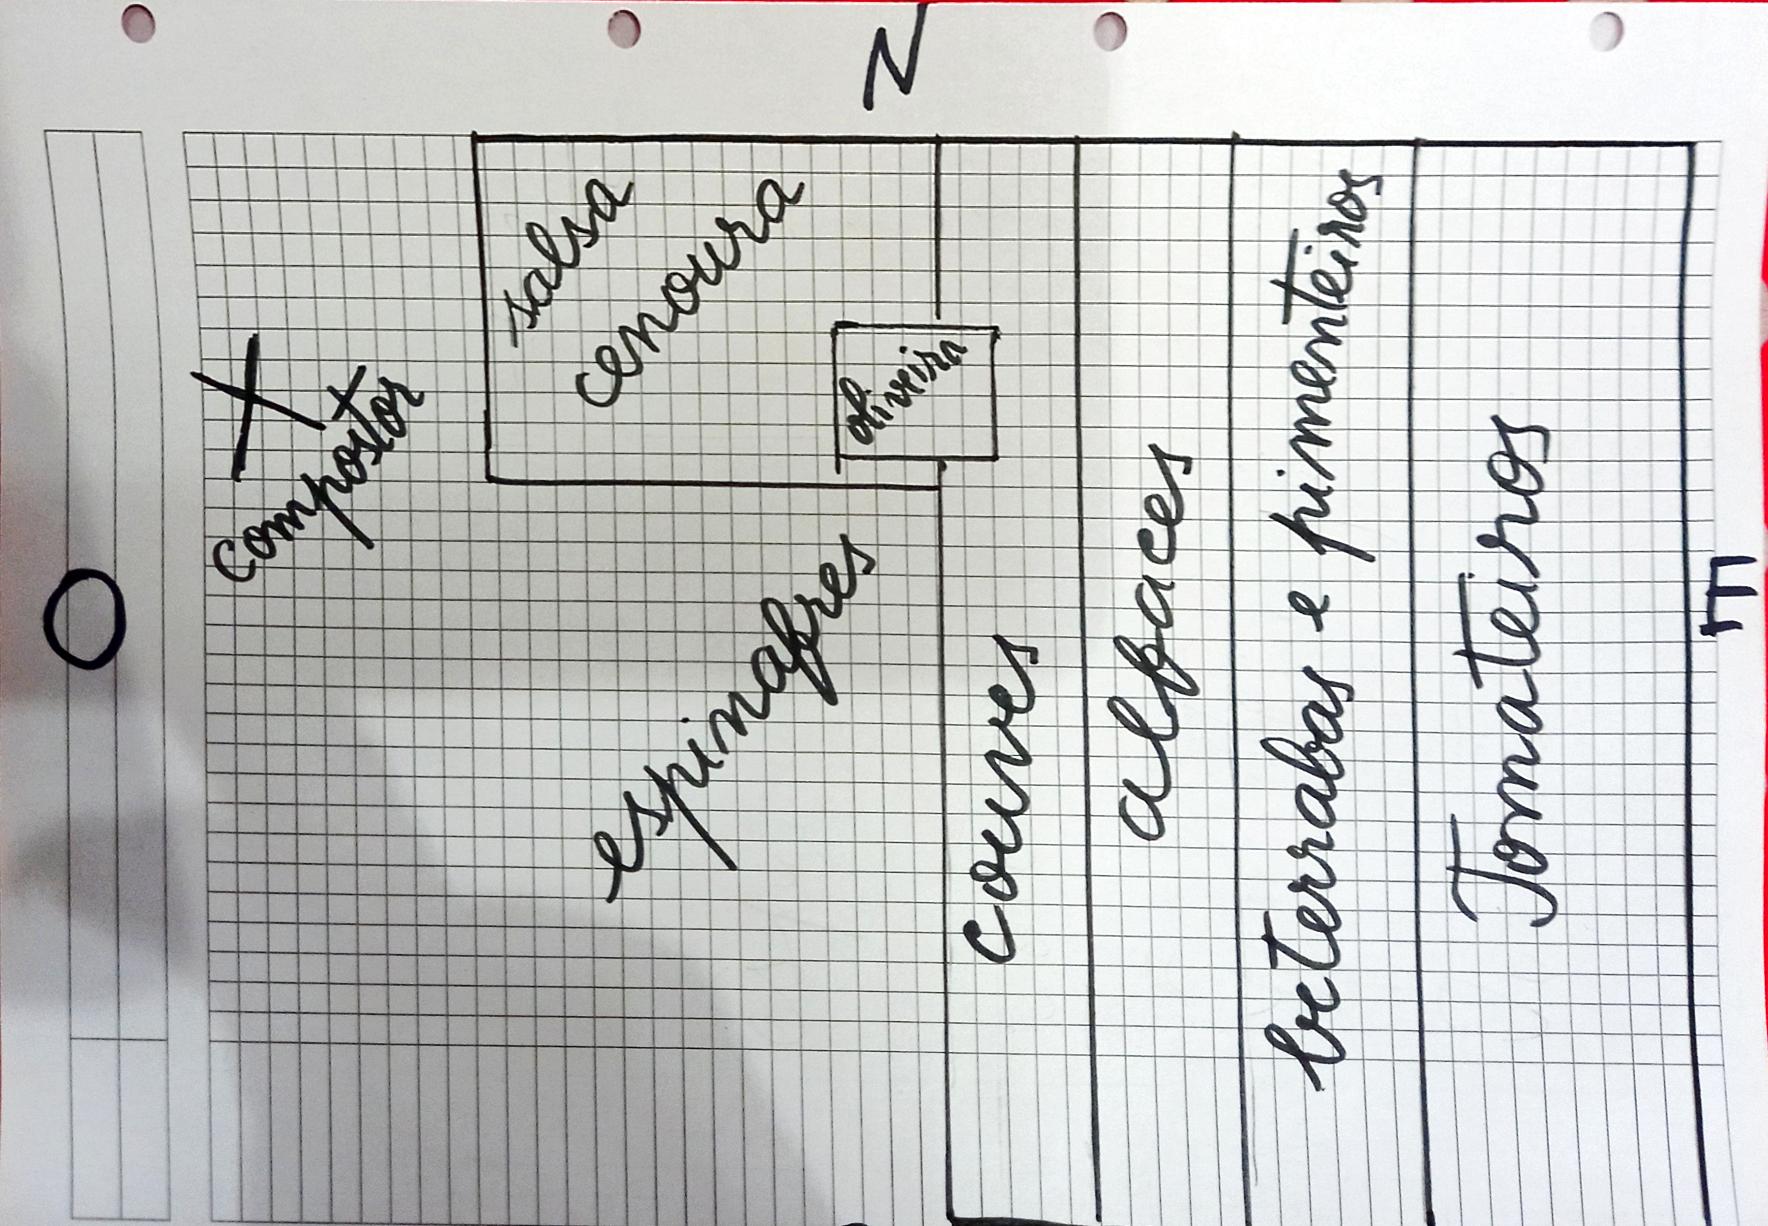 N
salsa
cenoura
oliveira
X
compostor
O
espinafres
couves
alfaces
beterrabas e pimenteiros
Tomateiros
E